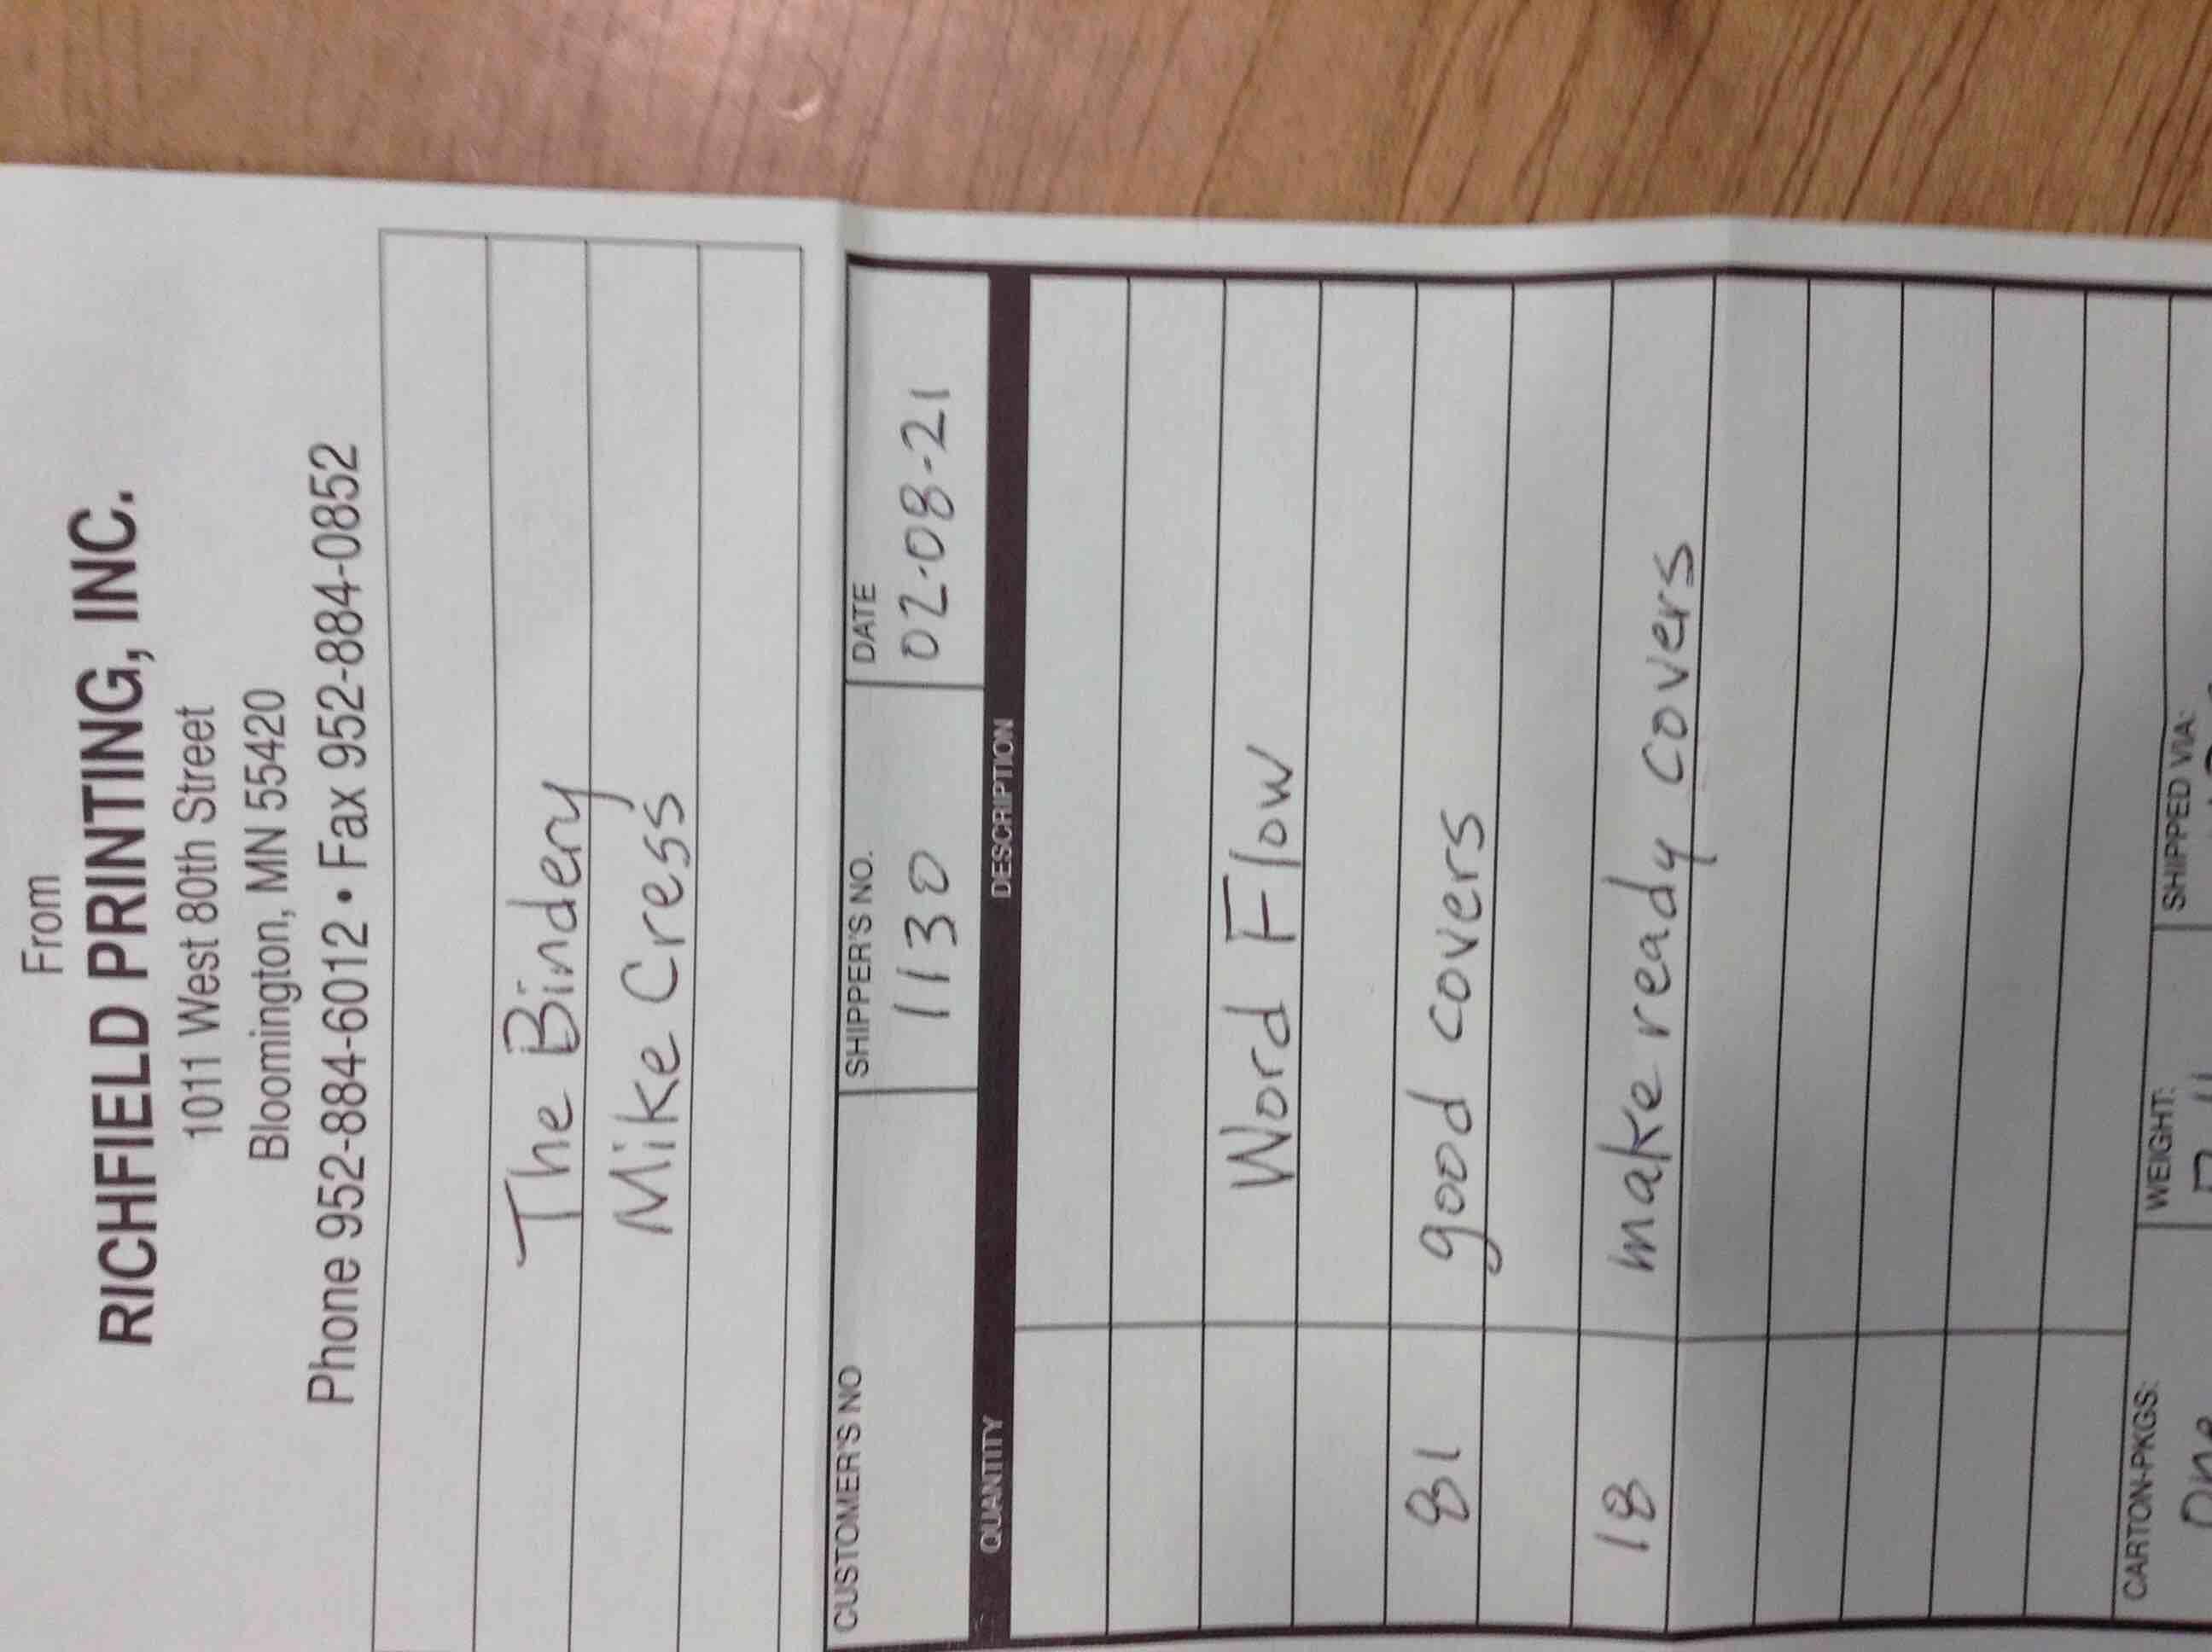 From
RICHFIELD PRINTING, INC.
1011 West 80th Street
Bloomington, MN 55420
Phone 952-884-6012 • Fax 952-884-0852
The Bindery
Mike Cress
CUSTOMER'S NO SHIPPER'S NO. DATE
1130 02-08-21
QUANTITY DESCRIPTION
Word Flow
81 good covers
18 make ready covers
CARTON-PKGS: WEIGHT: SHIPPED VIA:
One